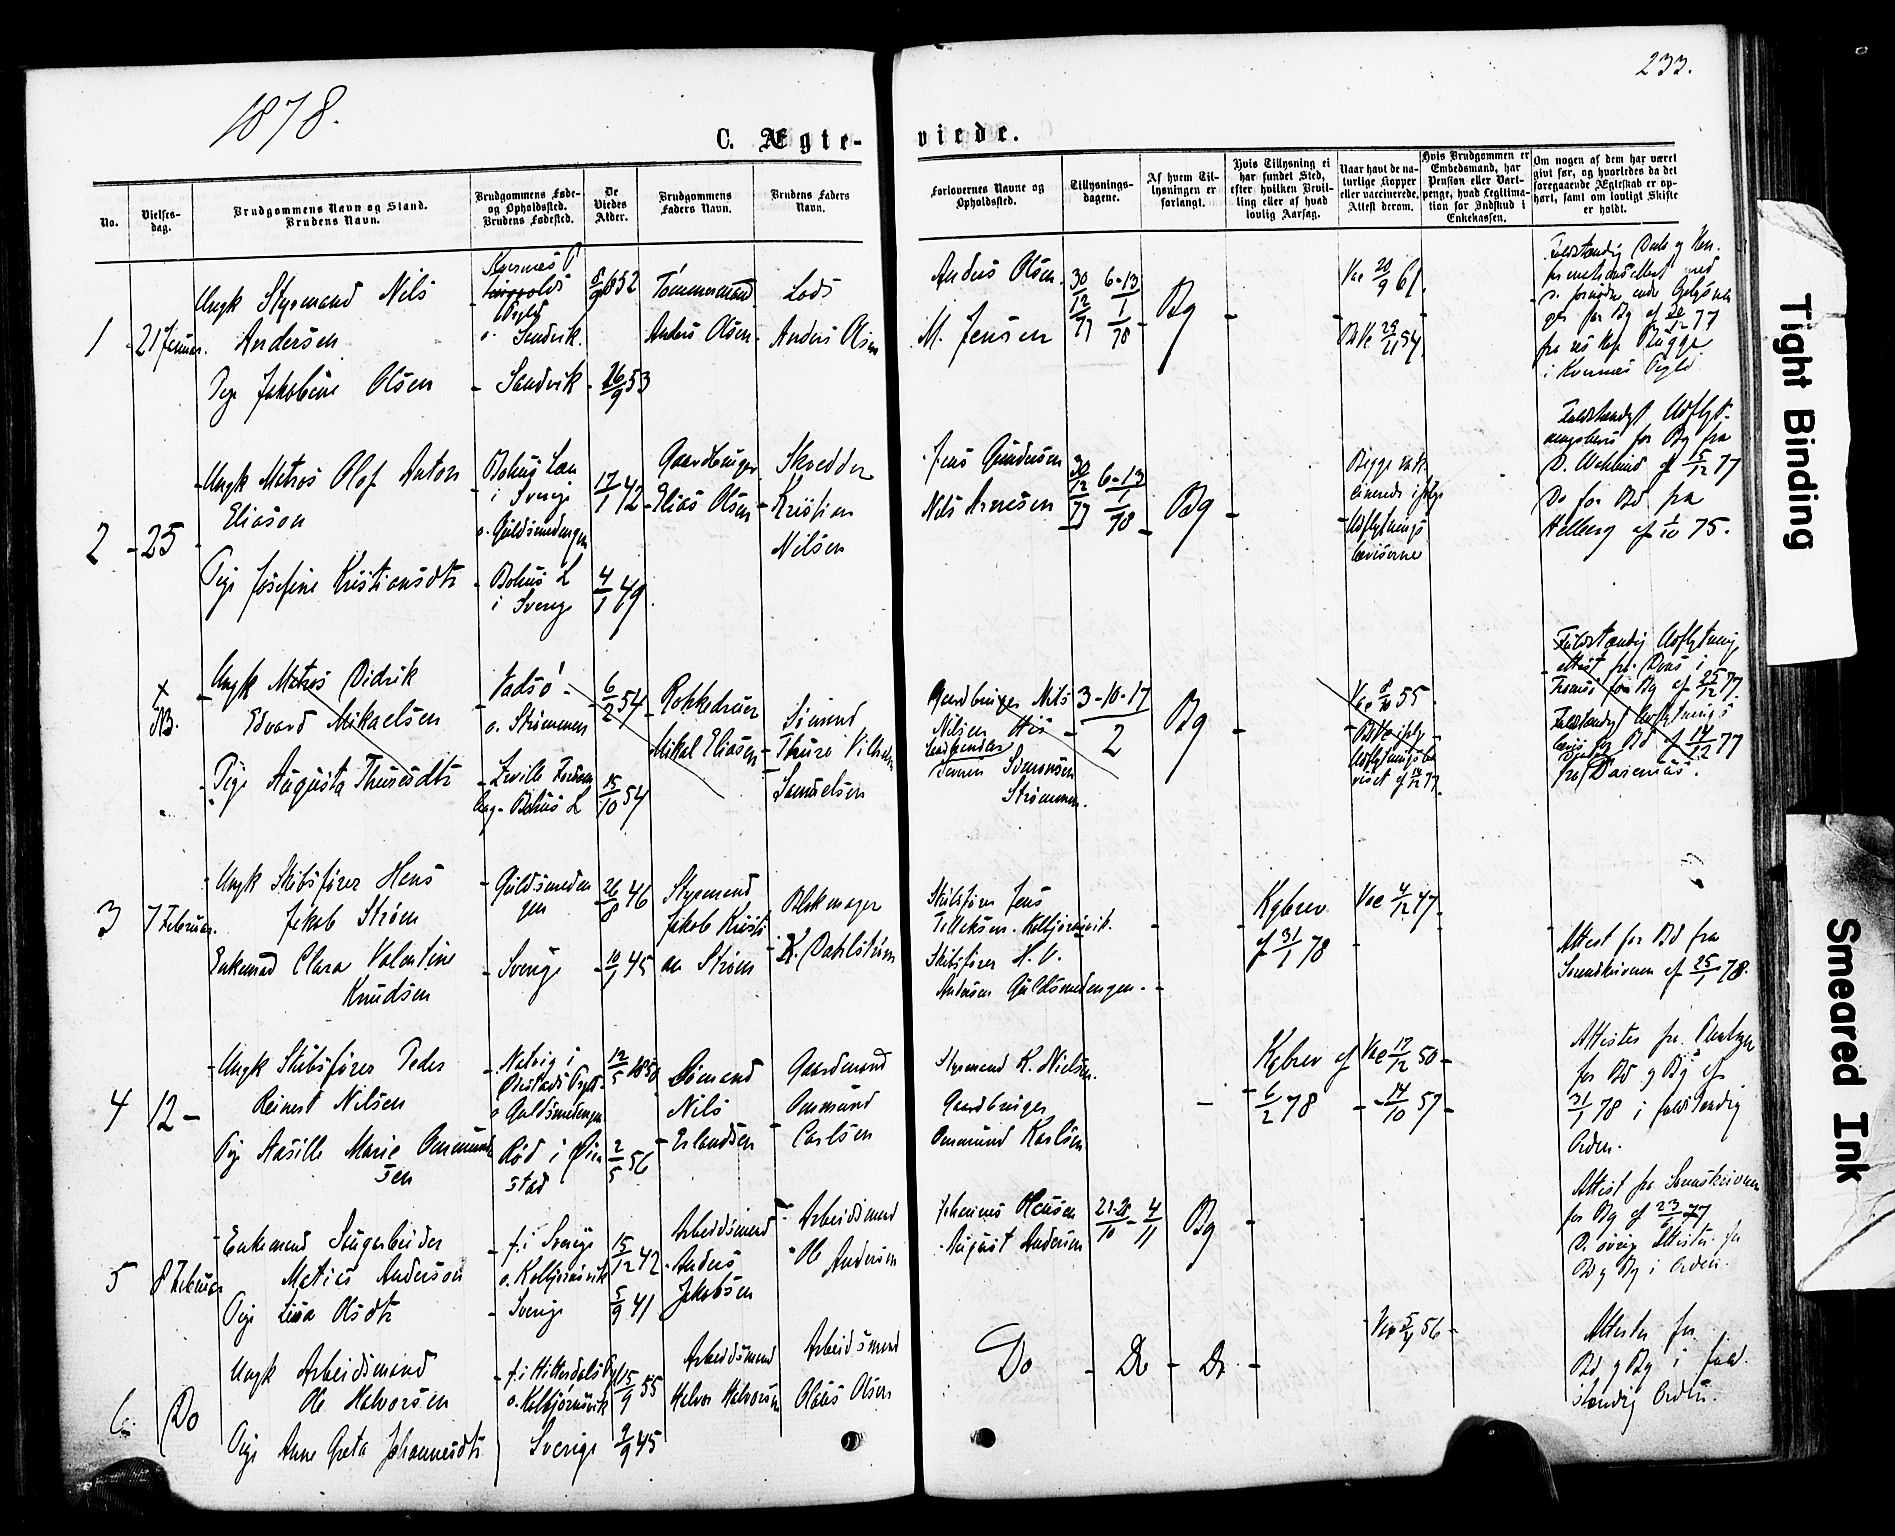 1878.
233.
C. Ægte-
viede.
No.
Vielses-
dag.
Brudgommens Navn og Stand.
Brudens Navn.
Brudgommens Føde-
og Opholdssted.
Brudens Fødested.
De
Viedes
Alder.
Brudgommens
Faders Navn.
Brudens Faders
Navn.
Forlovernes Navne og
Opholdssted.
Tillysnings-
dagene.
Af hvem Til-
lysningen er
forlangt.
Hvis Tillysning ei
har fundet Sted,
efter hvilken Bevil-
ling eller af hvad
lovlig Aarsag.
Naar havt de na-
turlige Kopper
eller vaccinerede.
Attest derom.
Hvis Brudgommen er
Embedsmand, har
Pension eller Vart-
penge, hvad Legitima-
tion for Indskud i
Enkekassen.
Om nogen af dem har været
gift før, og hvorledes da det
foregaaende Ægteskab er op-
hørt, samt om lovligt Skifte
er holdt.
1
21 Januar.
Ungk Styrmand Nils
Andersen
Pige Jakobine Olsen
Kvernes P
o. Sandvik.
Sandvik
26/9 53
Tømmermand
Anders Olsen
Lods
Anders Olsen
Anders Olsen
M. Jensen
30/12 77
6-13/1 78
Bg
Vac 20/9 61
i Kvernes Pgld
2
25
Ungk Matros Olof Anton
Eliason
Pige Josefine Kristiansdtr
Bohus Len
i Sverige
o. Guldsmedengen
Bohus L
i Sverige
17/1 42
4/1 49
Gaardbruger
Elias Olsen
Skredder
Kristian
Nilsen
Jens Gundersen
Nils Arnesen
30/12 77
6-13/1 78
Bg
Begge vac-
cinerede ifølge
Udflytnings
beviserne
Fuldstændigt Udflyt-
ningsbevis for Bg fra
15/12 77
Do for Bd fra
Helberg af 1/10 75.
NB.
Ungk Matros Didrik
Edvard Mikaelsen
Pige Augusta Thuresdtr
Vadsø
o. Strømmen
Bohus L
6/2 54
15/10 54
Rokkedreier
Mikal Eliasen
Simend
Thure Vilhelm
Samuelsen
Gaardbruger Nils
Nilsen His
Simonsen
Strømmen.
3-10-17
2
Bg
55
Fuldstændig Udflytning
Tromsø for Bg af 25/12 77.
Fuldstændigt Udflytnings
bevis for Bd af 14/12 77
3
7 Februar.
Ungk Skibsfører Hans
Jakob Strøm
Enkemad Clara Valentine
Knudsen
Guldsmeden
gen
Sverige
26/8 46
10/1 45
Styrmand
Jakob Kristi
an Strøm
Blokmager
K. Dahlstrøm
Skibsfører Jens
Tellefsen. Kolbjørnsvik.
Skibsfører H. V.
Andersen Guldsmedengen.
Kgbrev
af 31/1 78
Vac 4/12 47
Attest for Bd fra
Sorenskriveren af 25/1 78.
4
12
Ungk Skibsfører Peder
Reinert Nilsen
Pige Aasille Marie Ommund
sen
Natvig i
Øiestads Pgld
o Guldsmedengen
Rød i Øie
stad
12/5 1850
2/5 56
Sømand
Nils
Erlandsen
Gaardmand
Ommund
Carlsen
Styrmand K. Nielsen.
Gaardbruger
Ommund Karlsen
Kgbrev af
6/2 78
Vac 17/12 50
14/10 57
for Bd og Bg af
31/1 78 i fuldstændig
Orden.
5
8 Februar
Enkemand Sagarbeider
Matias Anderson
Pige Lina Olsdtr
f. i Sverige
o. Kolbjørnsvik
Sverige
15/12 42
5/9 41
Arbeidsmand
Anders
Jakobsen
Arbeidsmand
Ole Andersen
Johannes Hansen
August Andersen
21-28/10 - 4/11
Bg
Attest fra Sorenskriveren
for Bg af 23/6 77
De øvrige Attester for
Bd og Bg i Orden.
6
Do
Ungk Arbeidsmand
Ole Halvorsen
Pige Anne Greta Johannesdtr
f. i Hitterdals Pgld
o. Kolbjørnsvik
Sverige
15/9 55
9/9 45
Arbeidsmand
Halvor Halvorsen
Arbeidsmand
Olaus Olsen
Do
Do
Do
56
Attester for
Bd og Bg i fuld-
stændig Orden.
Tight Binding
Smeared Ink